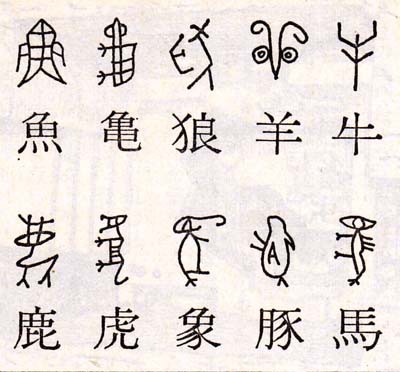 魚 亀 狼 羊 牛
鹿 虎 象 豚 馬